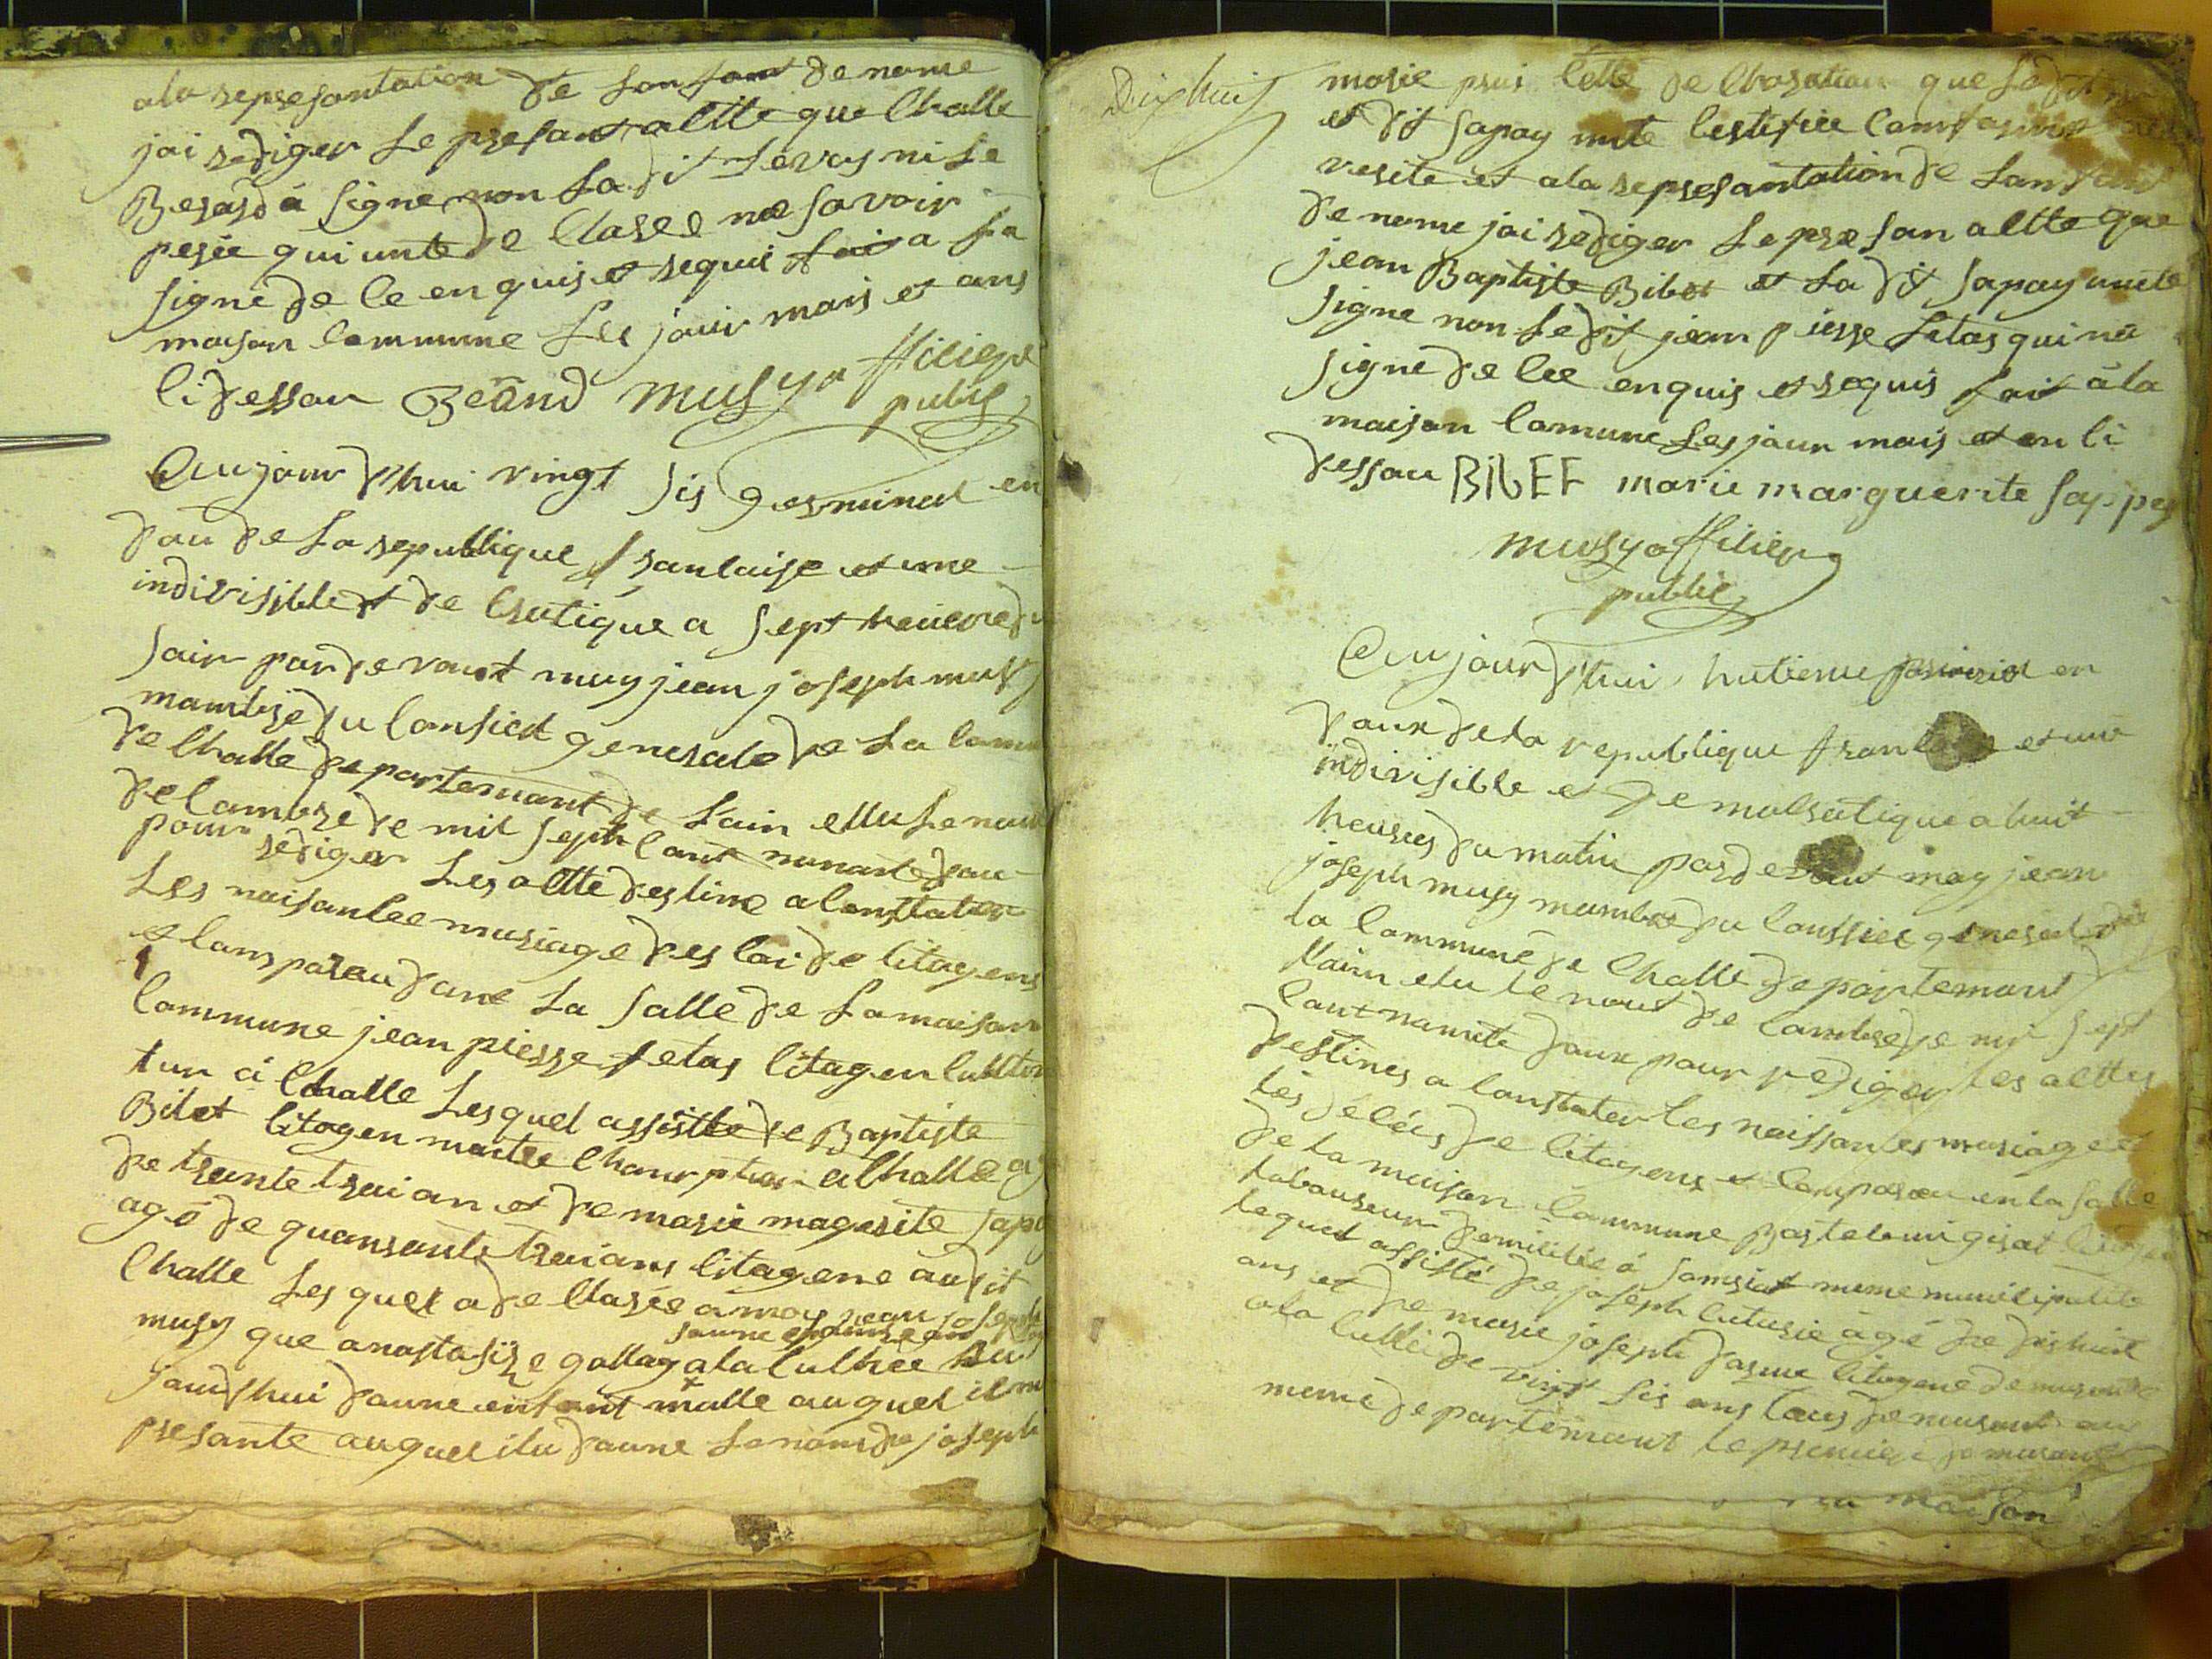 ala represantation de lanfant denome
jai rediger le presant altte que Challe
Berard a signe non la dit levoy ni le
perée qui unte de Claree nae savoir
signe de le en quis et requis fait a la
maison lommune Les jour mois et ans
li dessau Beãnd musy offilier
public
Aujour dhui vingt sis germinal en
dau de la republique fransaise et une
indivisible et de lratique a sept heueure du
sair par devant muy jean joseph musy
mambre du lonsiell generale de la lomu
de Challe departemant de Lain ellu le neuf
delambre de mil sept lant nonante dau
pour rediger Les altte destine a lonstater
Les naisanlee mariage des lai de litagens
et lamparau dane La salle de la maison
lommune jean pierre letas litagen lultiva
tur a Challe Lesquel assistte de Baptiste
Bilet litogen maitre Charptier a Challe ag
de trante troi an et de marie magerite sapa
agé de quaransante troi ans litagene audit
Challe Les quel a de Claree a moy jean joseph
musy que anastasize gallay ala lulhee
saune epouse an
jourdhui daune enfant malle auquel il m
presante auquel ila daune le nom de joseph
Dix huit
marie prai lette de Claration que le dit
et dit sapay unte lestifiee lomfasmer
verite et ala represantation de lanfant
de nome jai rediger le presan altte que
jean Baptiste Bilet et la dit sapay unte
signe non le dit jean pierre Letas qui na
signe de lee enquis et requis fait á la
maison lomune Les jaur mais et an li
dessau BILEF marie marguerite sappey
musy offilier
public
Aujour dhui huitieme prairial en
daux de la republique franlaise et une
indivisible et de molratique a huit
heures du matin par devant moy jean
joseph musy mambre du lonssiel general de
la lommune de Challe departemant de
Lain elu le neuf de lambre de mil sept
lant nanante daux pour rediger les alttes
destines a lonstater les naissanles mariage et
les délés de litagens et lomparau en la salle
de la maison lommune Bartelemi girat
labaureur demillée á meme munilipalité
lequel assisté de joseph luturie agé de dishuit
ans et de marie joseph darme litogene demurante
ala lullée de vingt sis ans taus demurant au
meme departemant le premier demurant
maison